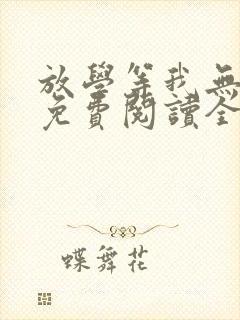 放學等我無
免費閱讀全
蝶舞花